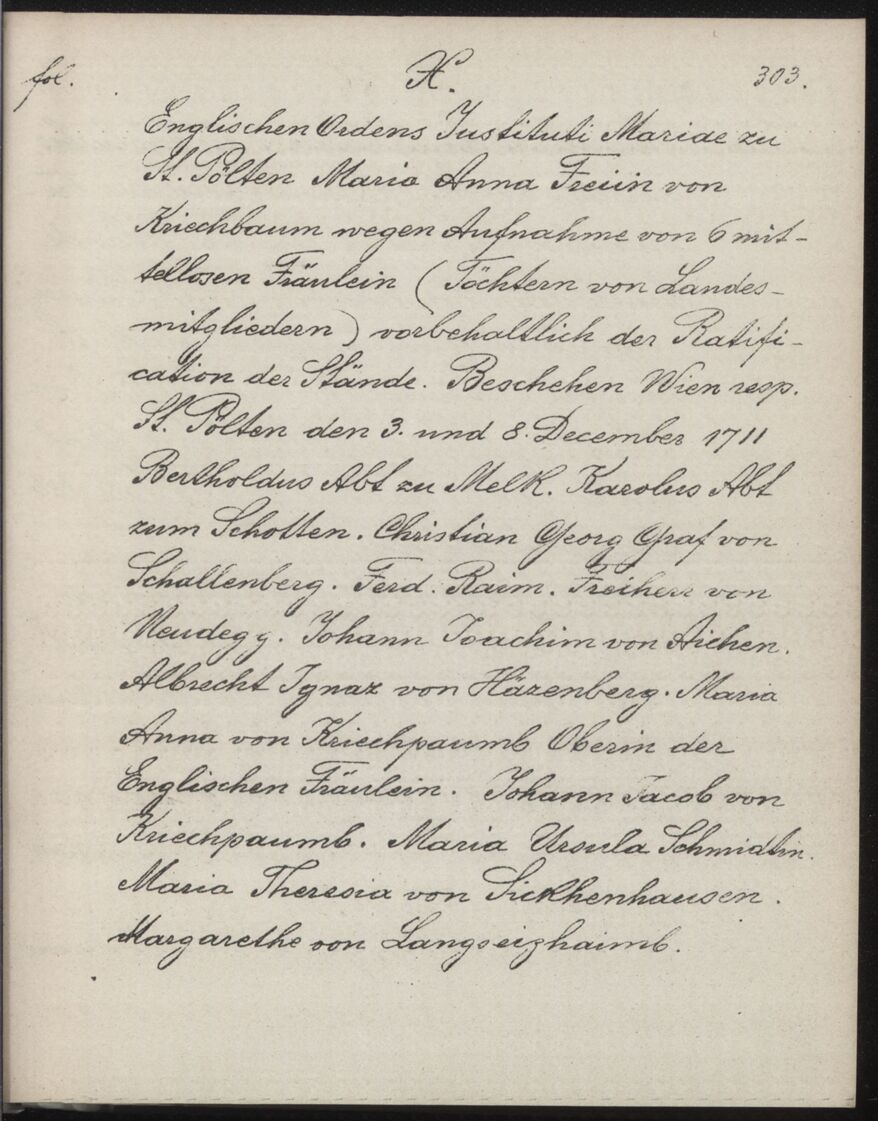 fol. H. 303.
Englischen Ordens Instituti Mariae zu
St. Pölten Maria Anna Freiin von
Kriechbaum wegen Aufnahme von 6 mit-
tellosen Fräulein (Töchtern von Landes-
mitgliedern) vorbehaltlich der Ratifi-
cation der Stände. Beschehen Wien resp.
St. Pölten den 3. und 8. December 1711
Bertholdus Abt zu Melk. Karolus Abt
zum Schotten. Christian Georg Graf von
Schallenberg. Ferd. Raim. Freiherr von
Neudegg. Johann Joachim von Aichen.
Albrecht Ignaz von Häzenberg. Maria
Anna von Kriechpaumb Oberin der
Englischen Fräulein. Johann Jacob von
Kriechpaumb. Maria Ursula Schmidtin.
Maria Theresia von Sickhenhausen.
Margarethe von